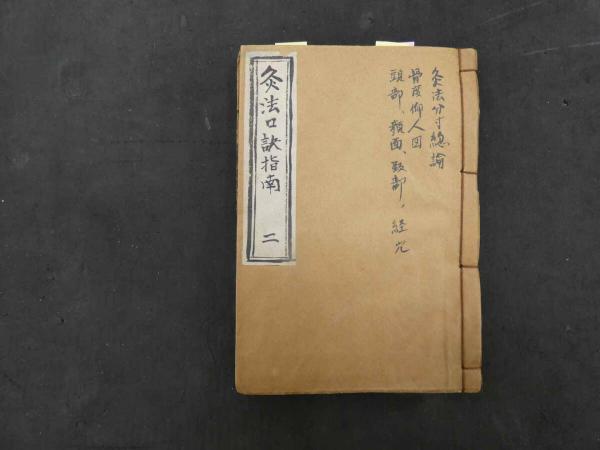 灸法分寸總論
骨度仰人図
頭部、顔面、頸部、経穴
灸法口訣指南 二